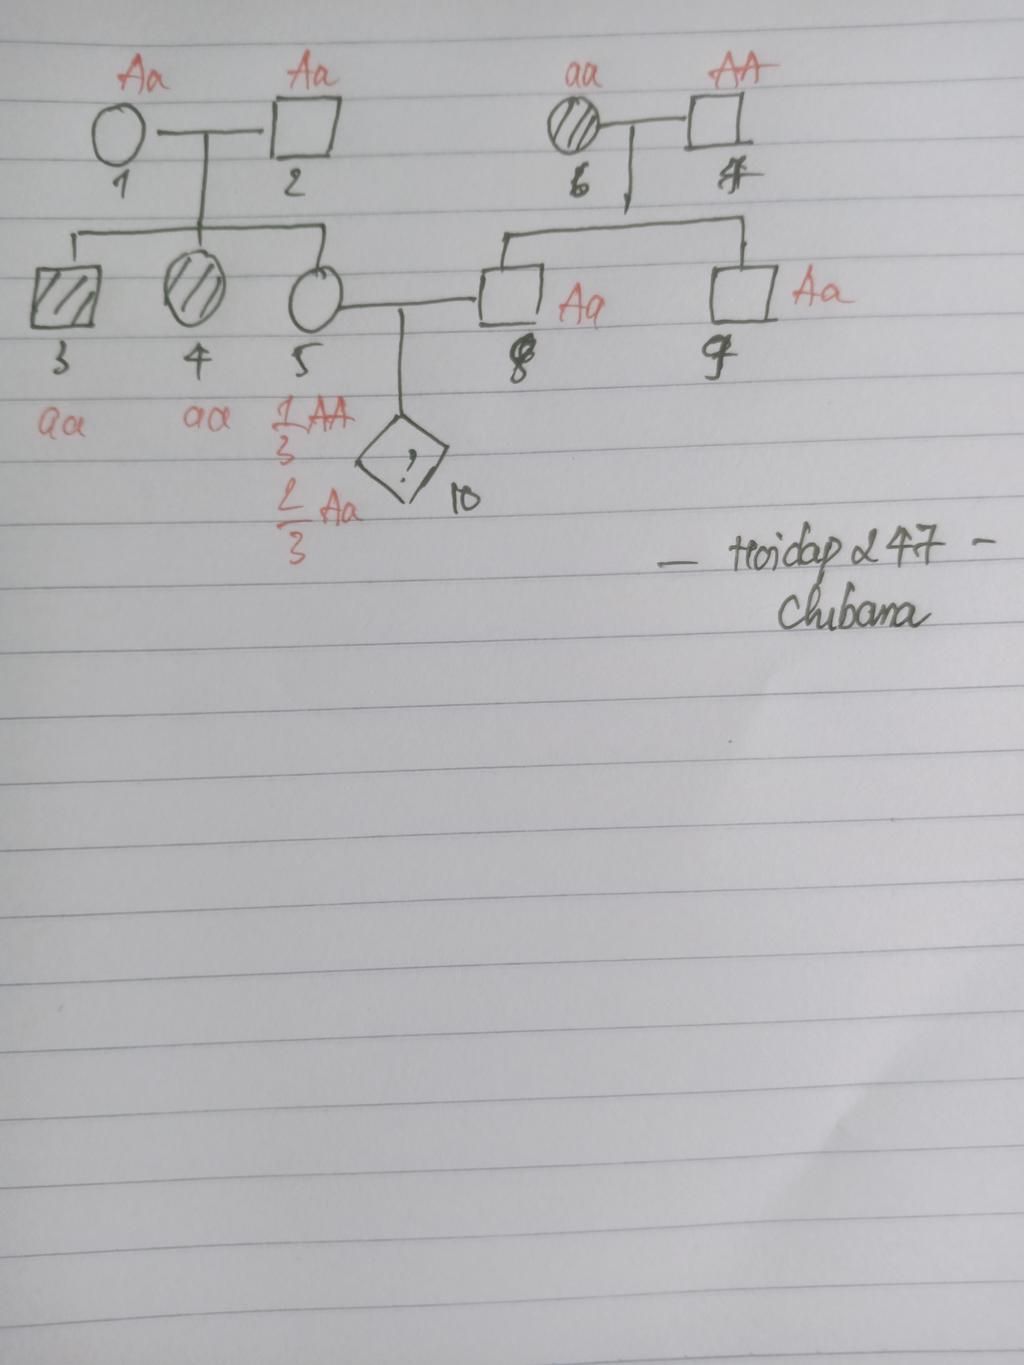 Aa Aa aa AA
1 2 6 7
Aa Aa
3 4 5 8 9
aa aa 1/3 AA
? 10
2/3 Aa
- Hoidap 247 -
Chibana